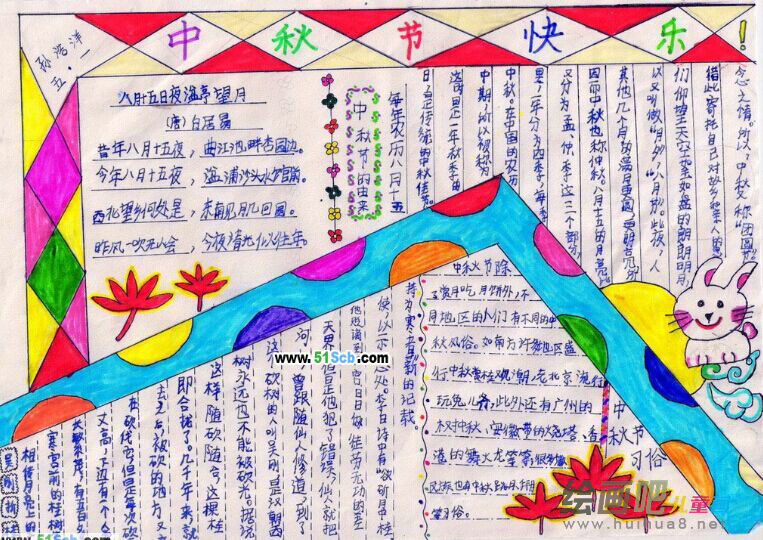 中秋节快乐!
孙浩洋
五·二
八月十五日夜湓亭望月
(唐)白居易
昔年八月十五夜,曲江池畔杏园边。
今年八月十五夜,湓浦沙头水馆前。
西北望乡何处是,东南见月几回圆。
昨风一吹无人会,今夜清光似往年。
中秋节的由来
每年农历八月十五
日,是传统的中秋佳节。
这是一年秋季的
中期,所以被称为
中秋。在中国的农历
里,一年分为四季,每季
又分为孟、仲、季这三个部分,
因而中秋也称仲秋。八月十五的月亮比
其他几个月的满月更圆,更明亮,所
以又叫做"月夕","八月节"。此夜,人
们仰望天空如玉如盘的朗朗明月,
借此寄托自己对故乡和亲人的思
念之情。所以,中秋又称"团圆
吴刚折桂
相传月亮上的
寒宫前的桂树
长繁茂,有五百多
丈高,下边有一个人
在砍伐它,但是每次砍
去之后,被砍的地方又
即合拢了。几千年来,就
这样随砍随合,这棵桂
树永远也不能被砍光。据说
这个砍树的人叫吴刚,是汉朝西
河人,曾跟随仙人修道,到了
天界,但是他犯了错误,仙人就把
他贬谪到月宫,日日做这种徒劳无功的苦
使,以示惩处。李白诗中有"欲斫月中桂
持为寒者薪"的记载。
中秋节习俗
中秋节除
了赏月吃月饼外,不同
月地区的人们有不同的中
秋风俗。如南方许多地区盛
行中秋赏桂观潮,老北京流行
玩兔儿爷,此外还有广州的
树中秋、安徽的火烧塔、香
港的舞火龙等等
等习俗。
www.51Scb.com
www.51Scb.com
绘画吧儿童画
www.huihua8.net